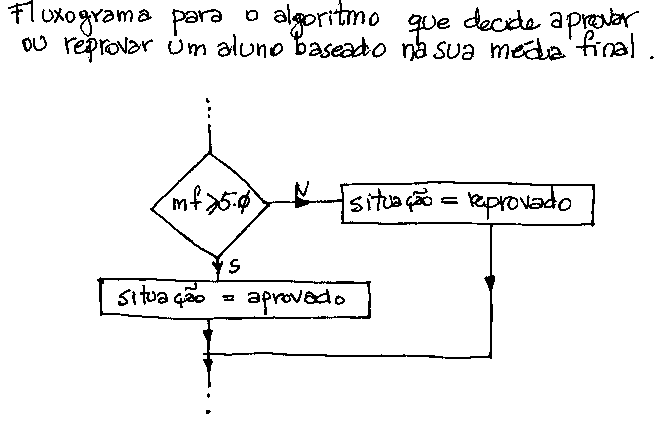 Fluxograma para o algoritmo que decide aprovar
ou reprovar um aluno baseado na sua média final.
mf ≥ 5.0
N
situação = reprovado
S
situação = aprovado